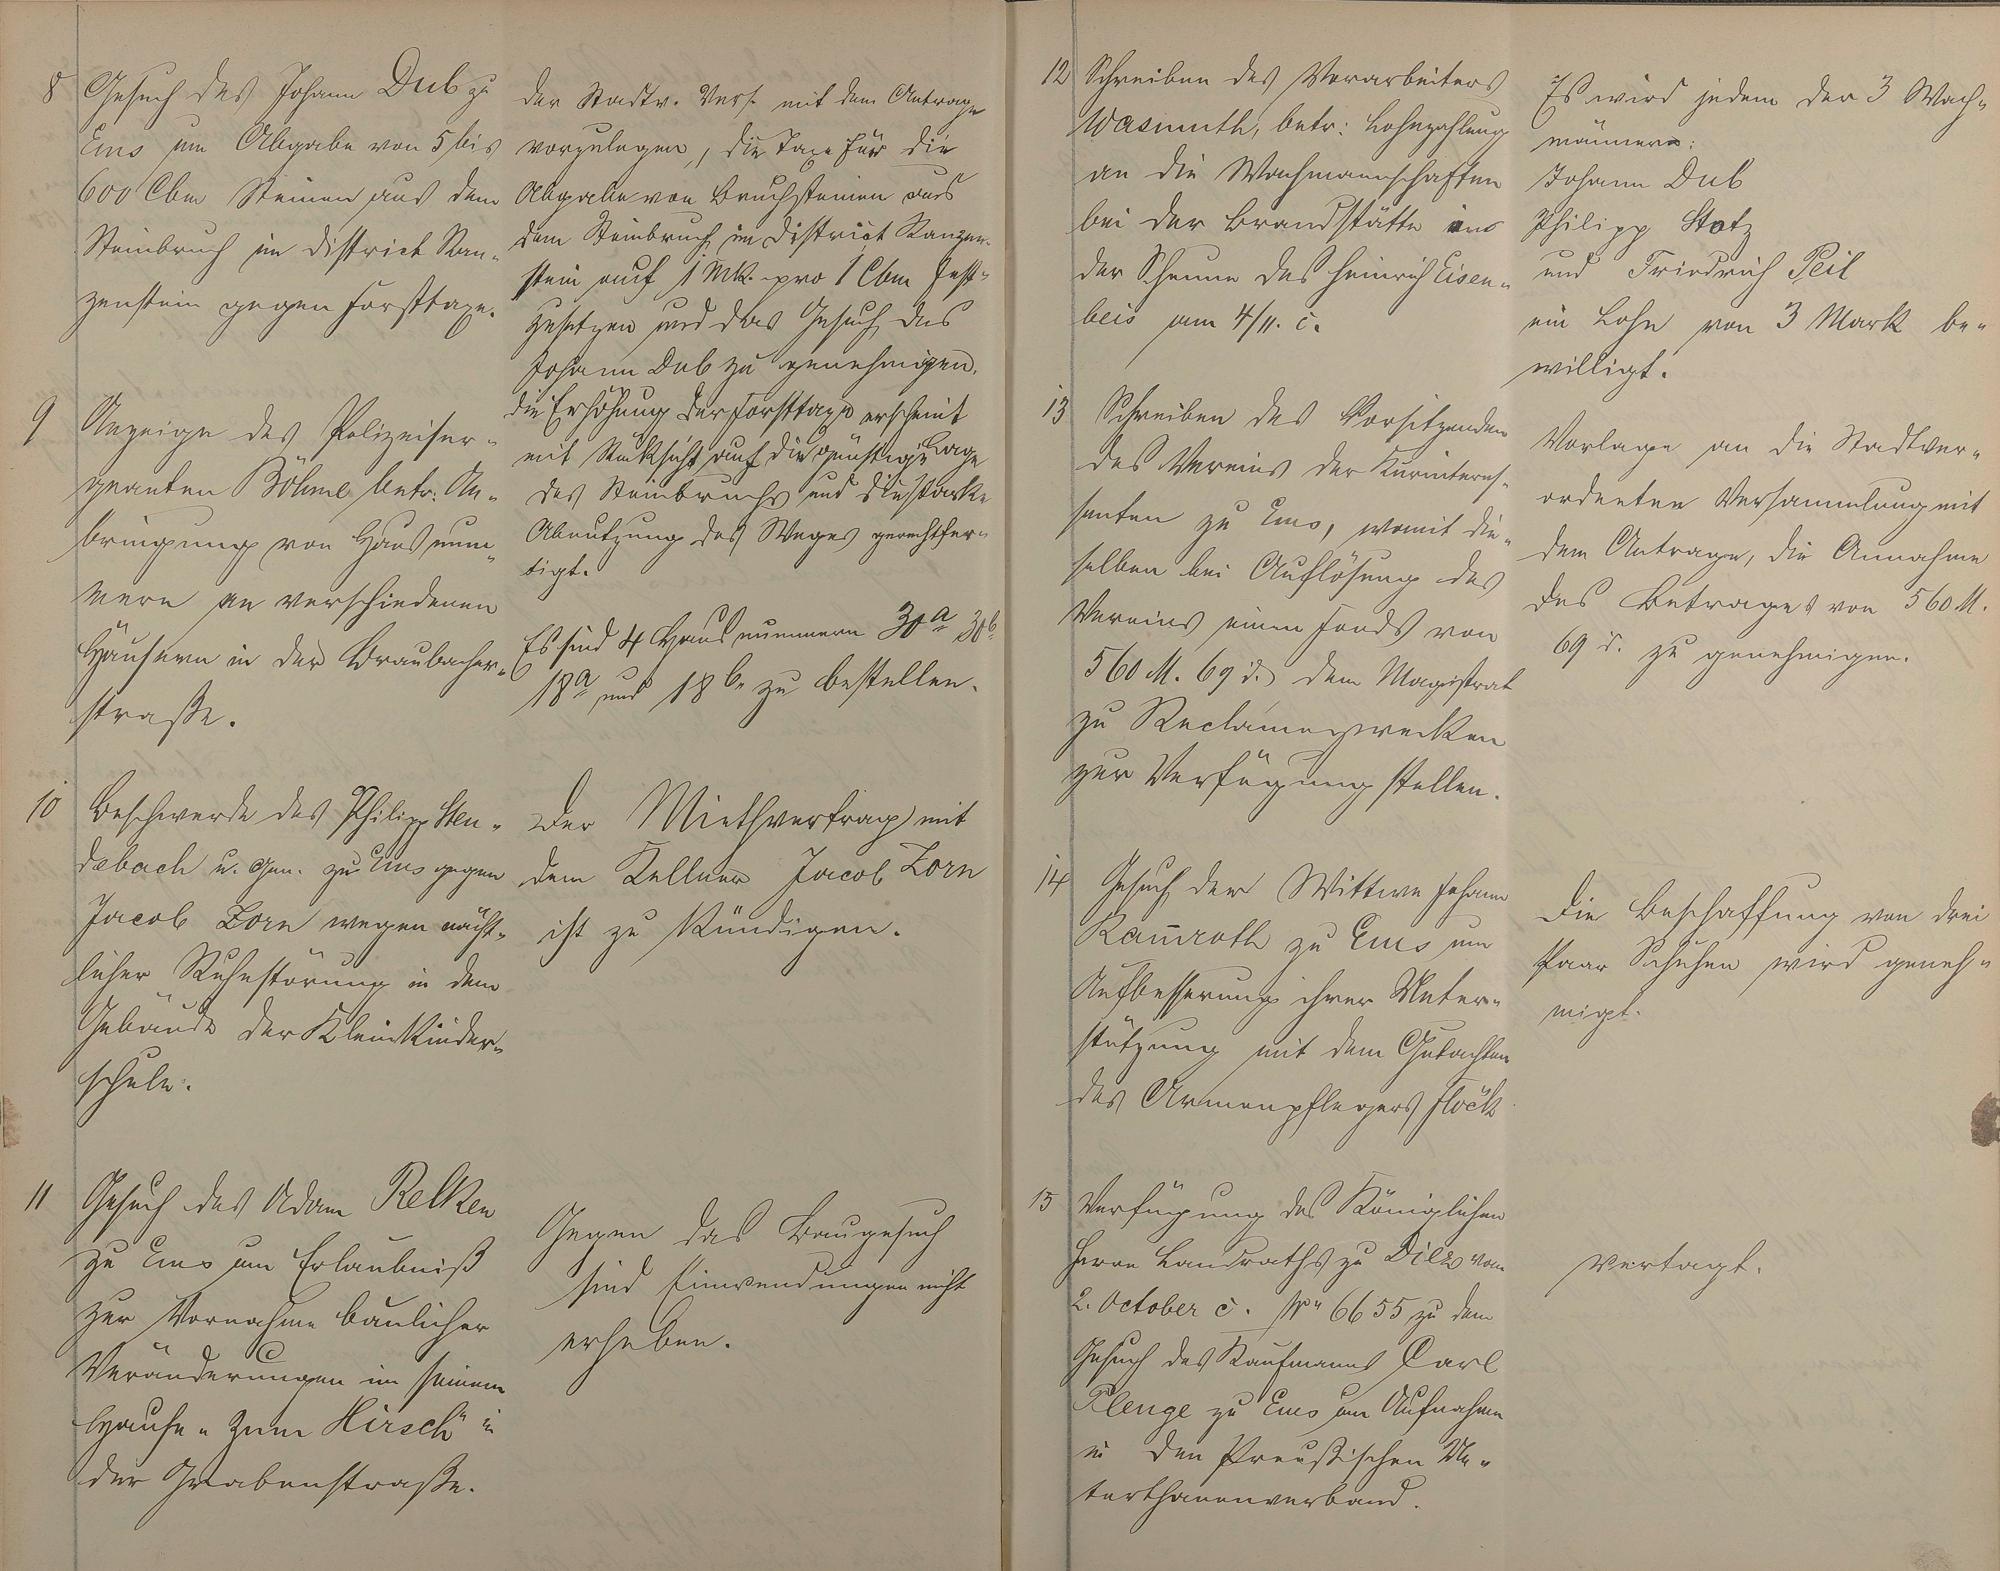 8 Gesuch des Johann Dub zu
Ems um Abgabe von 5 bis
600 Cbm Steinen aus dem
Steinbruch im District Kan-
zenstein gegen Forsttaxe.
der Stadtv. Vers. mit dem Antrage
vorzulegen, die Taxe für die
Abgabe von Bruchsteinen aus
dem Steinbruch im District Kanzen-
stein auf 1 Mk. pro 1 Cbm fest-
zusetzen und das Gesuch des
Johann Dub zu genehmigen.
die Erhöhung der Forsttaxe erscheint
mit Rücksicht auf die günstige Lage
des Steinbruchs und die starke
Abnutzung des Weges gerechtfer-
tigt.
9 Anzeige des Polizeiser-
geanten Böhme betr: An-
bringung von Hausnum-
mern an verschiedenen
Häusern in der Braubacher-
straße.
Es sind 4 Hausnummern 30a 30b
18a und 18b zu bestellen.
10 Beschwerde des Philipp Sten-
debach u. Gen. zu Ems gegen
Jacob Zorn wegen nächt-
licher Ruhestörung in dem
Gebäude der Kleinkinder-
schule.
Der Miethvertrag mit
dem Kellner Jacob Zorn
ist zu kündigen.
11 Gesuch des Adam Relken
zu Ems um Erlaubniß
zur Vornahme baulicher
Veränderungen in seinem
Hause „Zum Hirsch" in
der Grabenstraße.
Gegen das Baugesuch
sind Einwendungen nicht
erheben.
12 Schreiben des Vorarbeiters
Wasmuth, betr: Lohnzahlung
an die Wachmannschaften
bei der Brandstätte
der Scheune des Heinrich Eisen-
beis am 4/11. c.
Es wird jedem der 3 Wach-
männer:
Johann Dub
Philipp Stotz
und Friedrich Peil
ein Lohn von 3 Mark be-
willigt.
13 Schreiben des Vorsitzenden
des Vereins der Kurinteres-
senten zu Ems, womit die-
selben bei Auflösung des
Vereins einen Fonds von
560 M. 69 d. dem Magistrat
zu Reclamezwecken
zur Verfügung stellen.
Vorlage an die Stadtver-
ordneten Versammlung mit
dem Antrage, die Annahme
des Betrages von 560 M.
69 d. zu genehmigen.
14 Gesuch der Wittwe Johann
Kam̅roth zu Ems um
Aufbesserung ihrer Unter-
stützung mit dem Gutachten
des Armenpflegers Flöck
Die Beschaffung von drei
Paar Schuhen wird geneh-
migt.
15 Verfügung des Königlichen
Herrn Landraths zu Diez vom
2. October c. No 6655 zu dem
Gesuch des Kaufmanns Carl
Plenge zu Ems um Aufnahme
in den Preußischen Un-
terthanenverband.
vertagt.